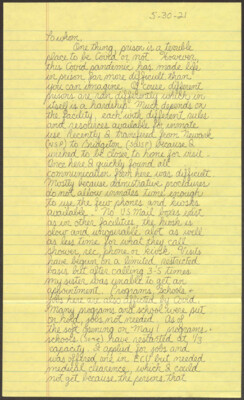 5-30-21
One thing, prison is a terrible
place to be Covid or not. However
this Covid pandemic has made life
in prison far more difficult than
you can imagine. Of course different
prisons are run differently which in
itself is a hardship. Much depends on
the facility, each with different rules
and resources available for inmate
use. Recently I transferred from Newark
(NSP) to Bridgeton (SWSP) because I
wished to be closer to home for visit.
Once here I quickly found all
communication from here was difficult
Mostly because administrative procedures
do not allow inmates time enough
to use the few phones and kiosks
available. No US Mail boxes exist
as in other facilities, the wash is
slow and inoperable alot as well
as less time for what they call
shower, rec, phone n kiosk. Visits
have begun on a limited, restricted
basis but after calling 3-5 times
my sister was unable to get an
appointment. Programs, Schools +
jobs here are also affected by Covid.
Many programs and school were put
on hold, jobs not needed. As of
the soft opening on May 1 programs +
schools have restarted at 1/3
capacity. I applied for jobs and
was offered one in ECU but needed
medical clearance, which I could
not get, because the persons that